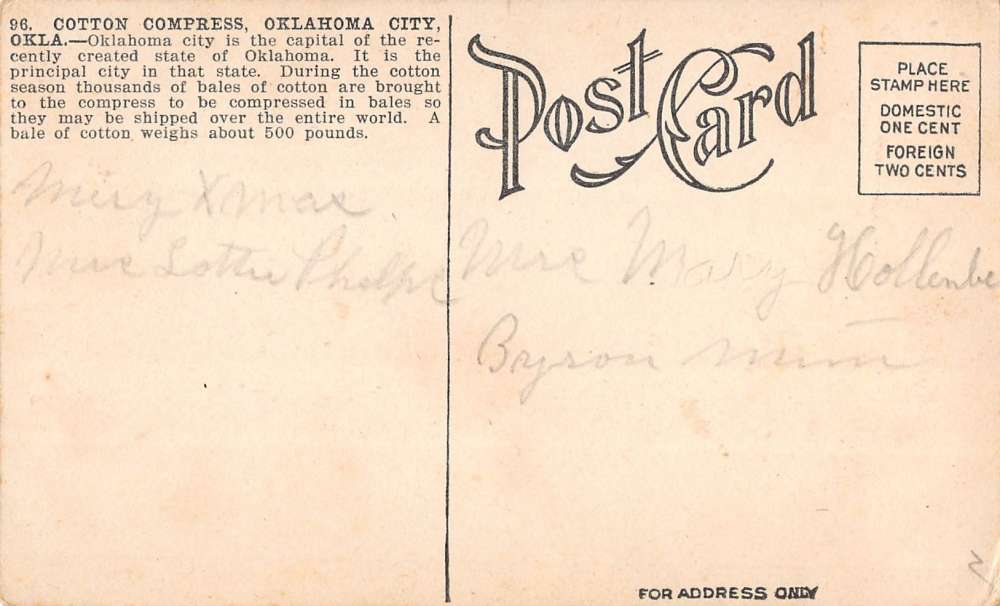 96. COTTON COMPRESS, OKLAHOMA CITY,
OKLA.—Oklahoma city is the capital of the re-
cently created state of Oklahoma. It is the
principal city in that state. During the cotton
season thousands of bales of cotton are brought
to the compress to be compressed in bales so
they may be shipped over the entire world. A
bale of cotton weighs about 500 pounds.
Mery Xmas
Mrs Lottie Phelps
Post Card
PLACE
STAMP HERE
DOMESTIC
ONE CENT
FOREIGN
TWO CENTS
Mrs Mary Hollenbe
Byron Minn
FOR ADDRESS ONLY